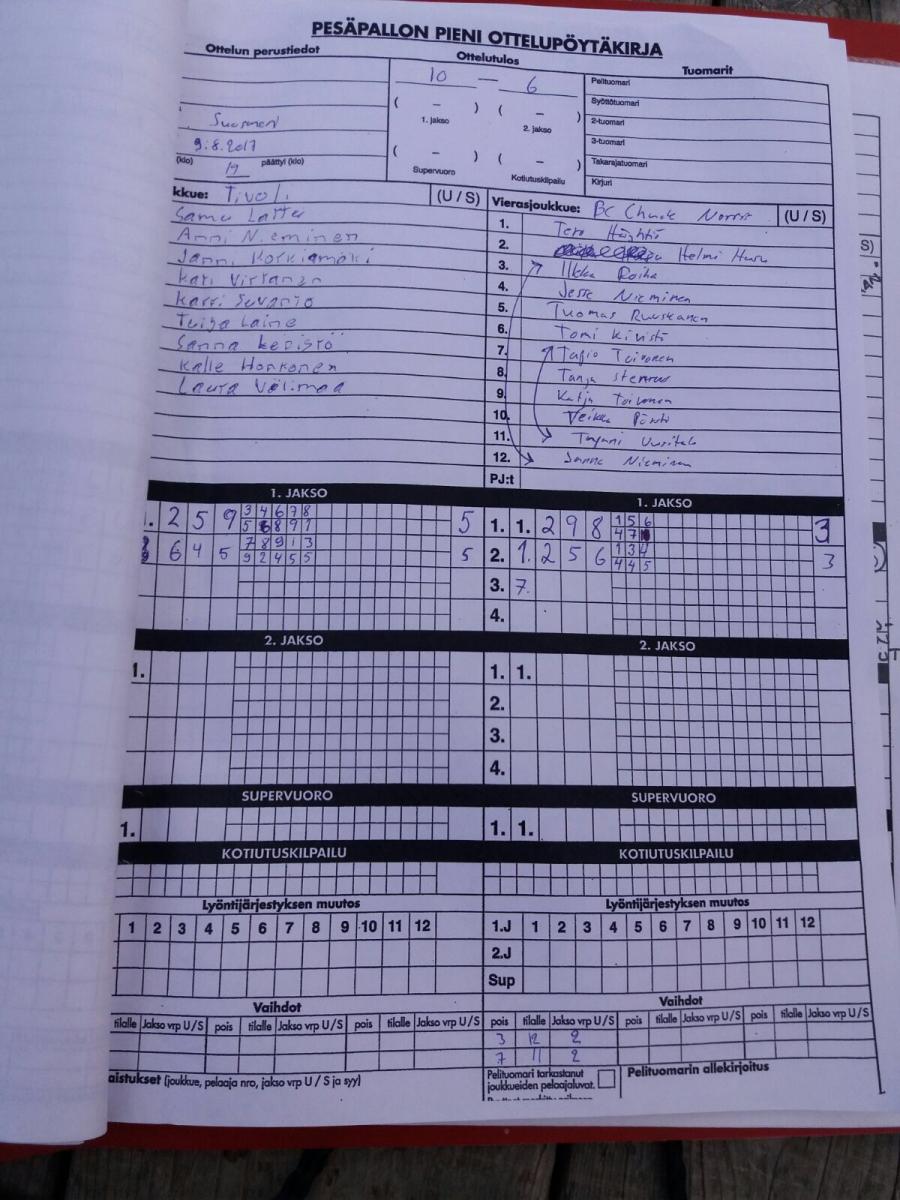 PESÄPALLON PIENI OTTELUPÖYTÄKIRJA
Ottelun perustiedot
Ottelutulos
Tuomarit
10 — 6
Pelituomari
Syöttötuomari
2-tuomari
3-tuomari
Takarajatuomari
Kirjuri
( – ) ( – )
1. jakso 2. jakso
( – ) ( – )
Supervuoro Kotiutuskilpailu
9.8.2017
(klo) 19 päättyi (klo)
kkue: Tivoli (U / S)
Samu
Anni Nieminen
Janni Korkiamäki
Kati Virtanen
Karri Suvanto
Tuija Laine
Sanna Kepistö
Kalle Honkonen
Laura Välimaa
Vierasjoukkue: BC Chuck Norris (U / S)
1. Tero
2. Helmi
3. Ilkka Roiha
4. Jesse Nieminen
5. Tuomas Ruuskanen
6. Tomi Kivistö
7. Tapio Toivonen
8. Tanja
9. Katja Toivonen
10. Veikko
11.
12. Sanna Nieminen
PJ:t
1. JAKSO
1. 2 5 9 3 4 6 7 8 5
5 6 8 9 1
6 4 5 7 8 9 1 3 5
9 2 4 5 5
1. JAKSO
1. 1. 2 9 8 1 5 6 3
4 7
2. 1. 2 5 6 1 3 4 3
4 4 5
3. 7.
4.
2. JAKSO
1.
2. JAKSO
1. 1.
2.
3.
4.
SUPERVUORO
1.
SUPERVUORO
1. 1.
KOTIUTUSKILPAILU
KOTIUTUSKILPAILU
Lyöntijärjestyksen muutos
1 2 3 4 5 6 7 8 9 10 11 12
Lyöntijärjestyksen muutos
1.J 1 2 3 4 5 6 7 8 9 10 11 12
2.J
Sup
Vaihdot
tilalle Jakso vrp U/S pois tilalle Jakso vrp U/S pois tilalle Jakso vrp U/S
Vaihdot
pois tilalle Jakso vrp U/S pois tilalle Jakso vrp U/S pois tilalle Jakso vrp U/S
3 12 2
7 11 2
aistukset (joukkue, pelaaja nro, jakso vrp U / S ja syy)
Pelituomari tarkastanut
joukkueiden pelaajaluvat.
Pelituomarin allekirjoitus